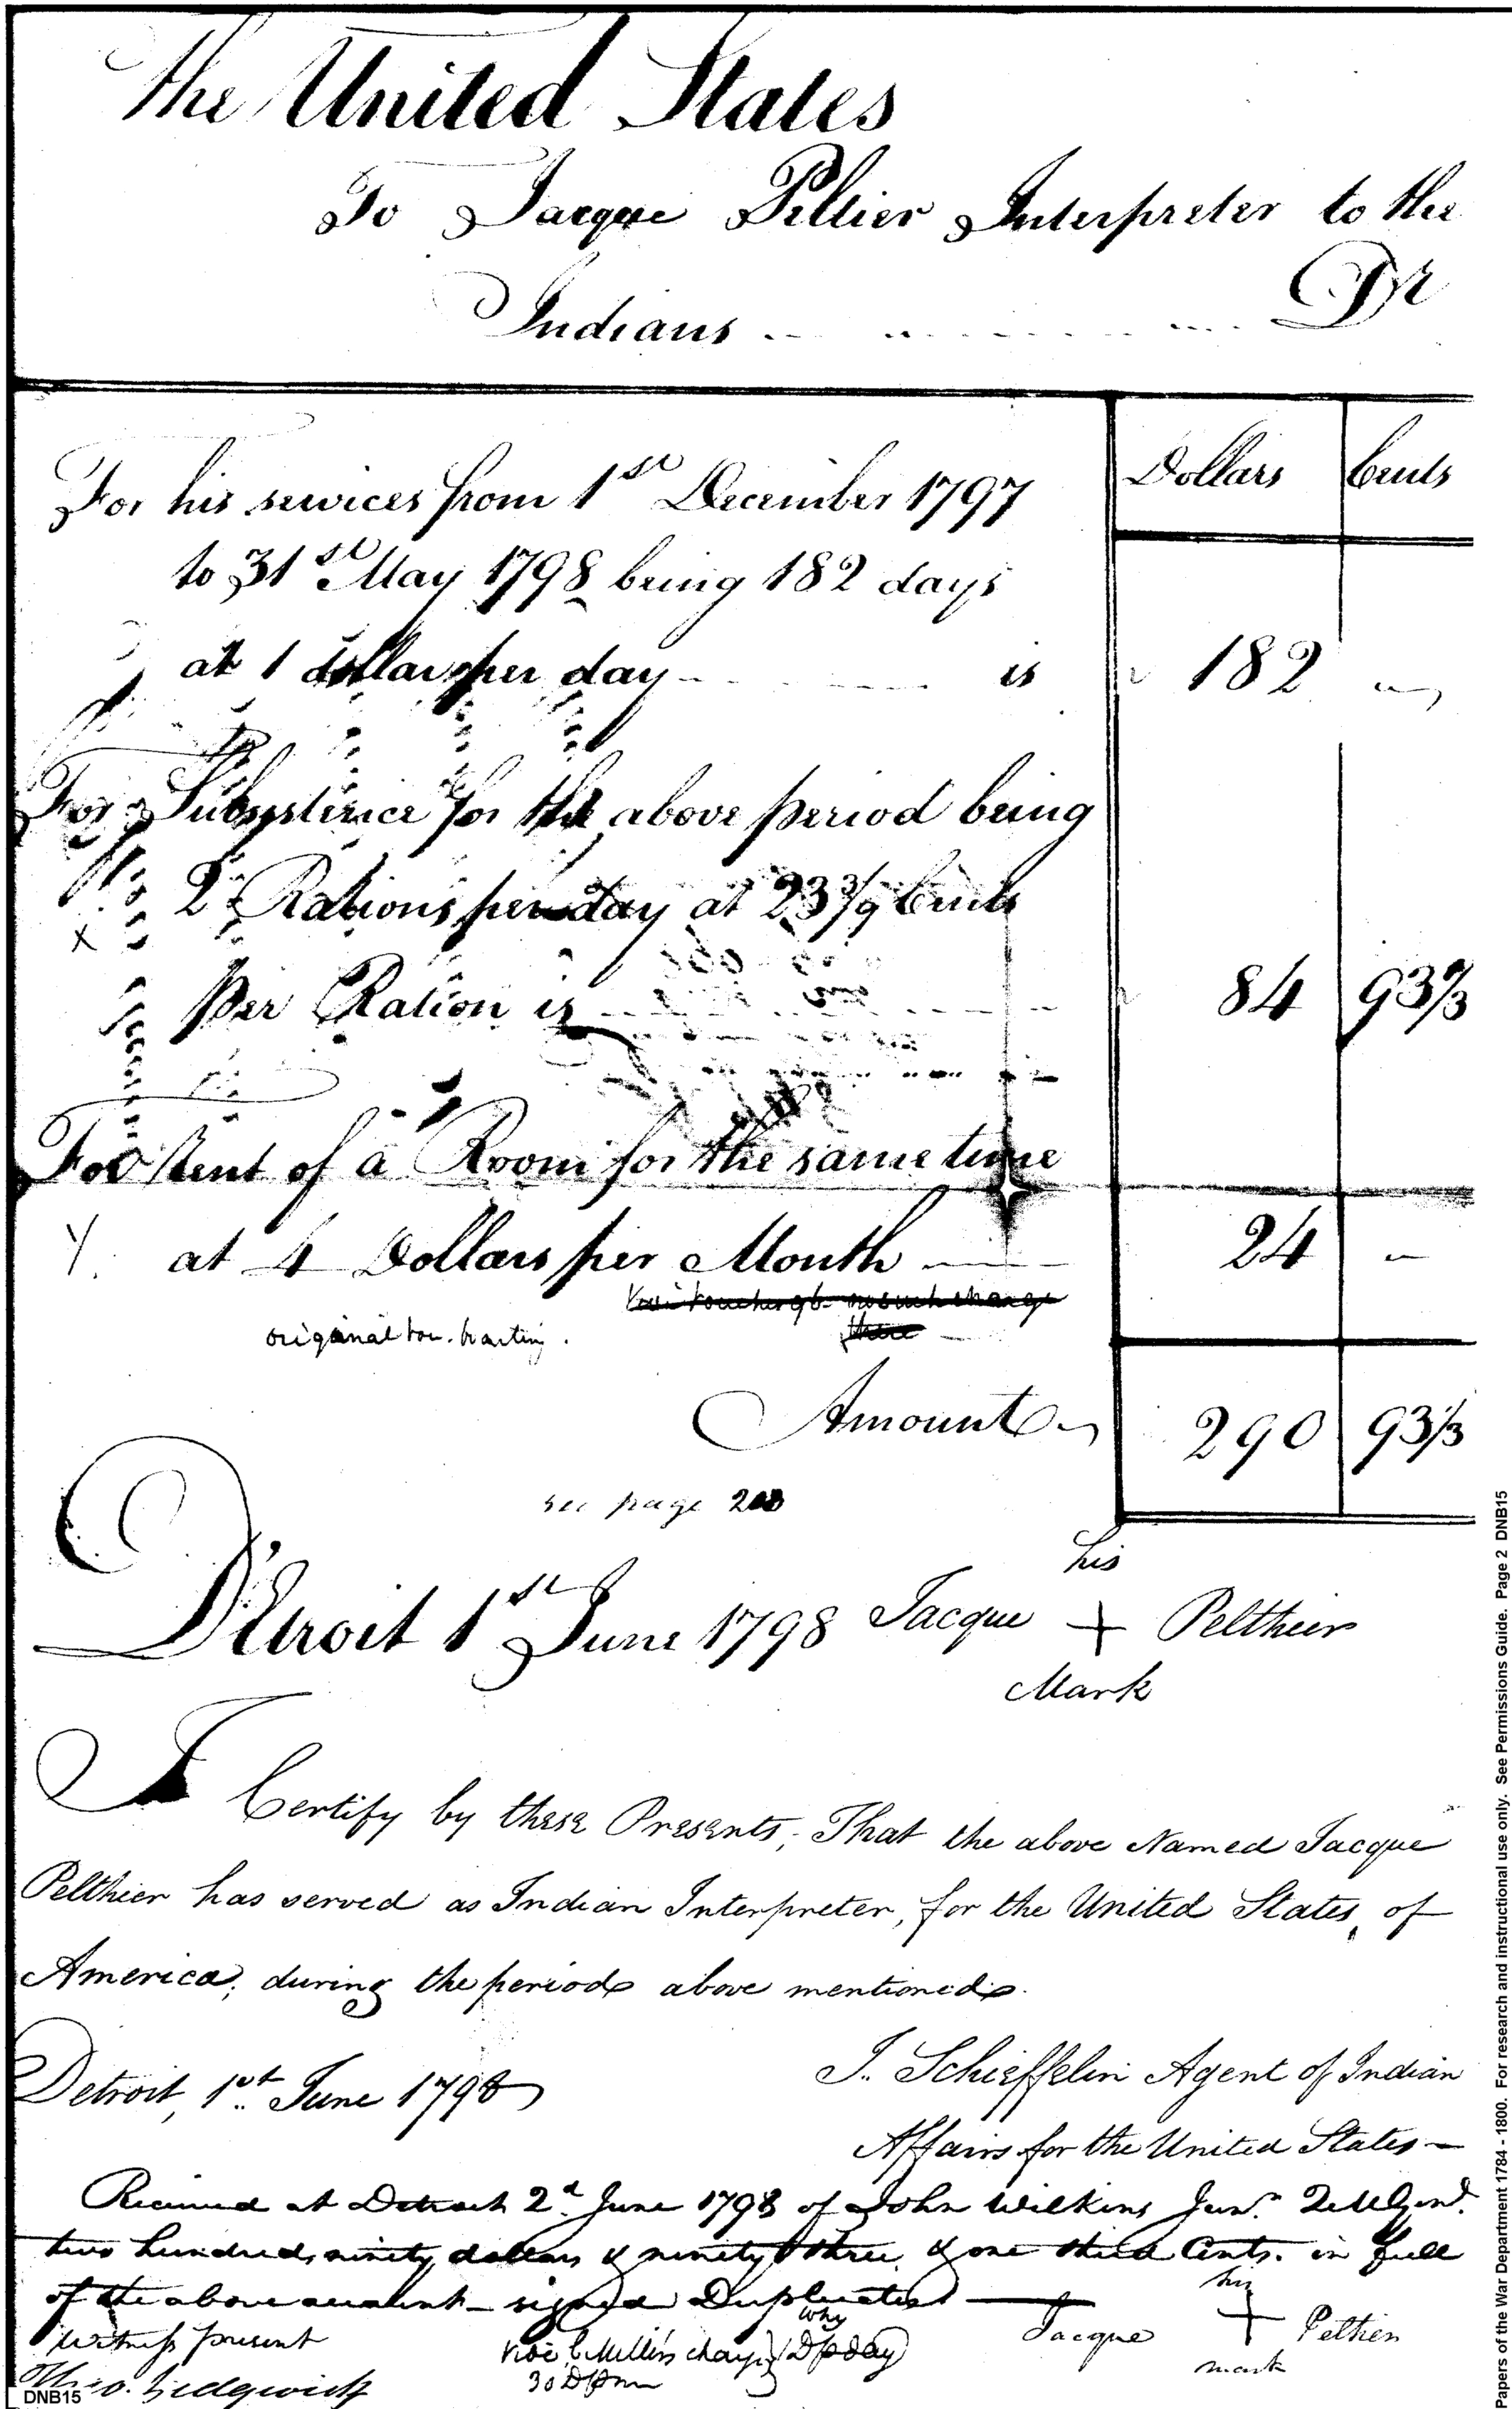 The United States
To Jacque Peltier Interpreter to the
Indians Dr
Dollars Cents
For his services from 1st December 1797
to 31st May 1798 being 182 days
at 1 dollar per day is 182
For Subsistence for the above period being
2 Rations per day at 23 3/9 Cents
per Ration is 84 93 1/3
For Rent of a Room for the same time
at 4 Dollars per Month 24
no such charge
there
original
Amount 290 93 1/3
see page
his
Detroit 1st June 1798 Jacque + Pelthier
Mark
I Certify by these Presents, That the above Named Jacque
Pelthier has served as Indian Interpreter, for the United States, of
America, during the period above mentioned.
Detroit, 1st June 1798
J. Schieffelin Agent of Indian
Affairs for the United States
Received at Detroit 2d June 1798 of John Wilkins Junr. QMGenl.
two hundred, ninety dollars & ninety three & one third Cents. in full
of the above account signed Duplicates
his
Jacque + Pelthier
mark
Witness present
Theo. Sedgwick
why
vide C Miller's charge D p day
30 D p m
DNB15
Papers of the War Department 1784 - 1800. For research and instructional use only. See Permissions Guide. Page 2 DNB15